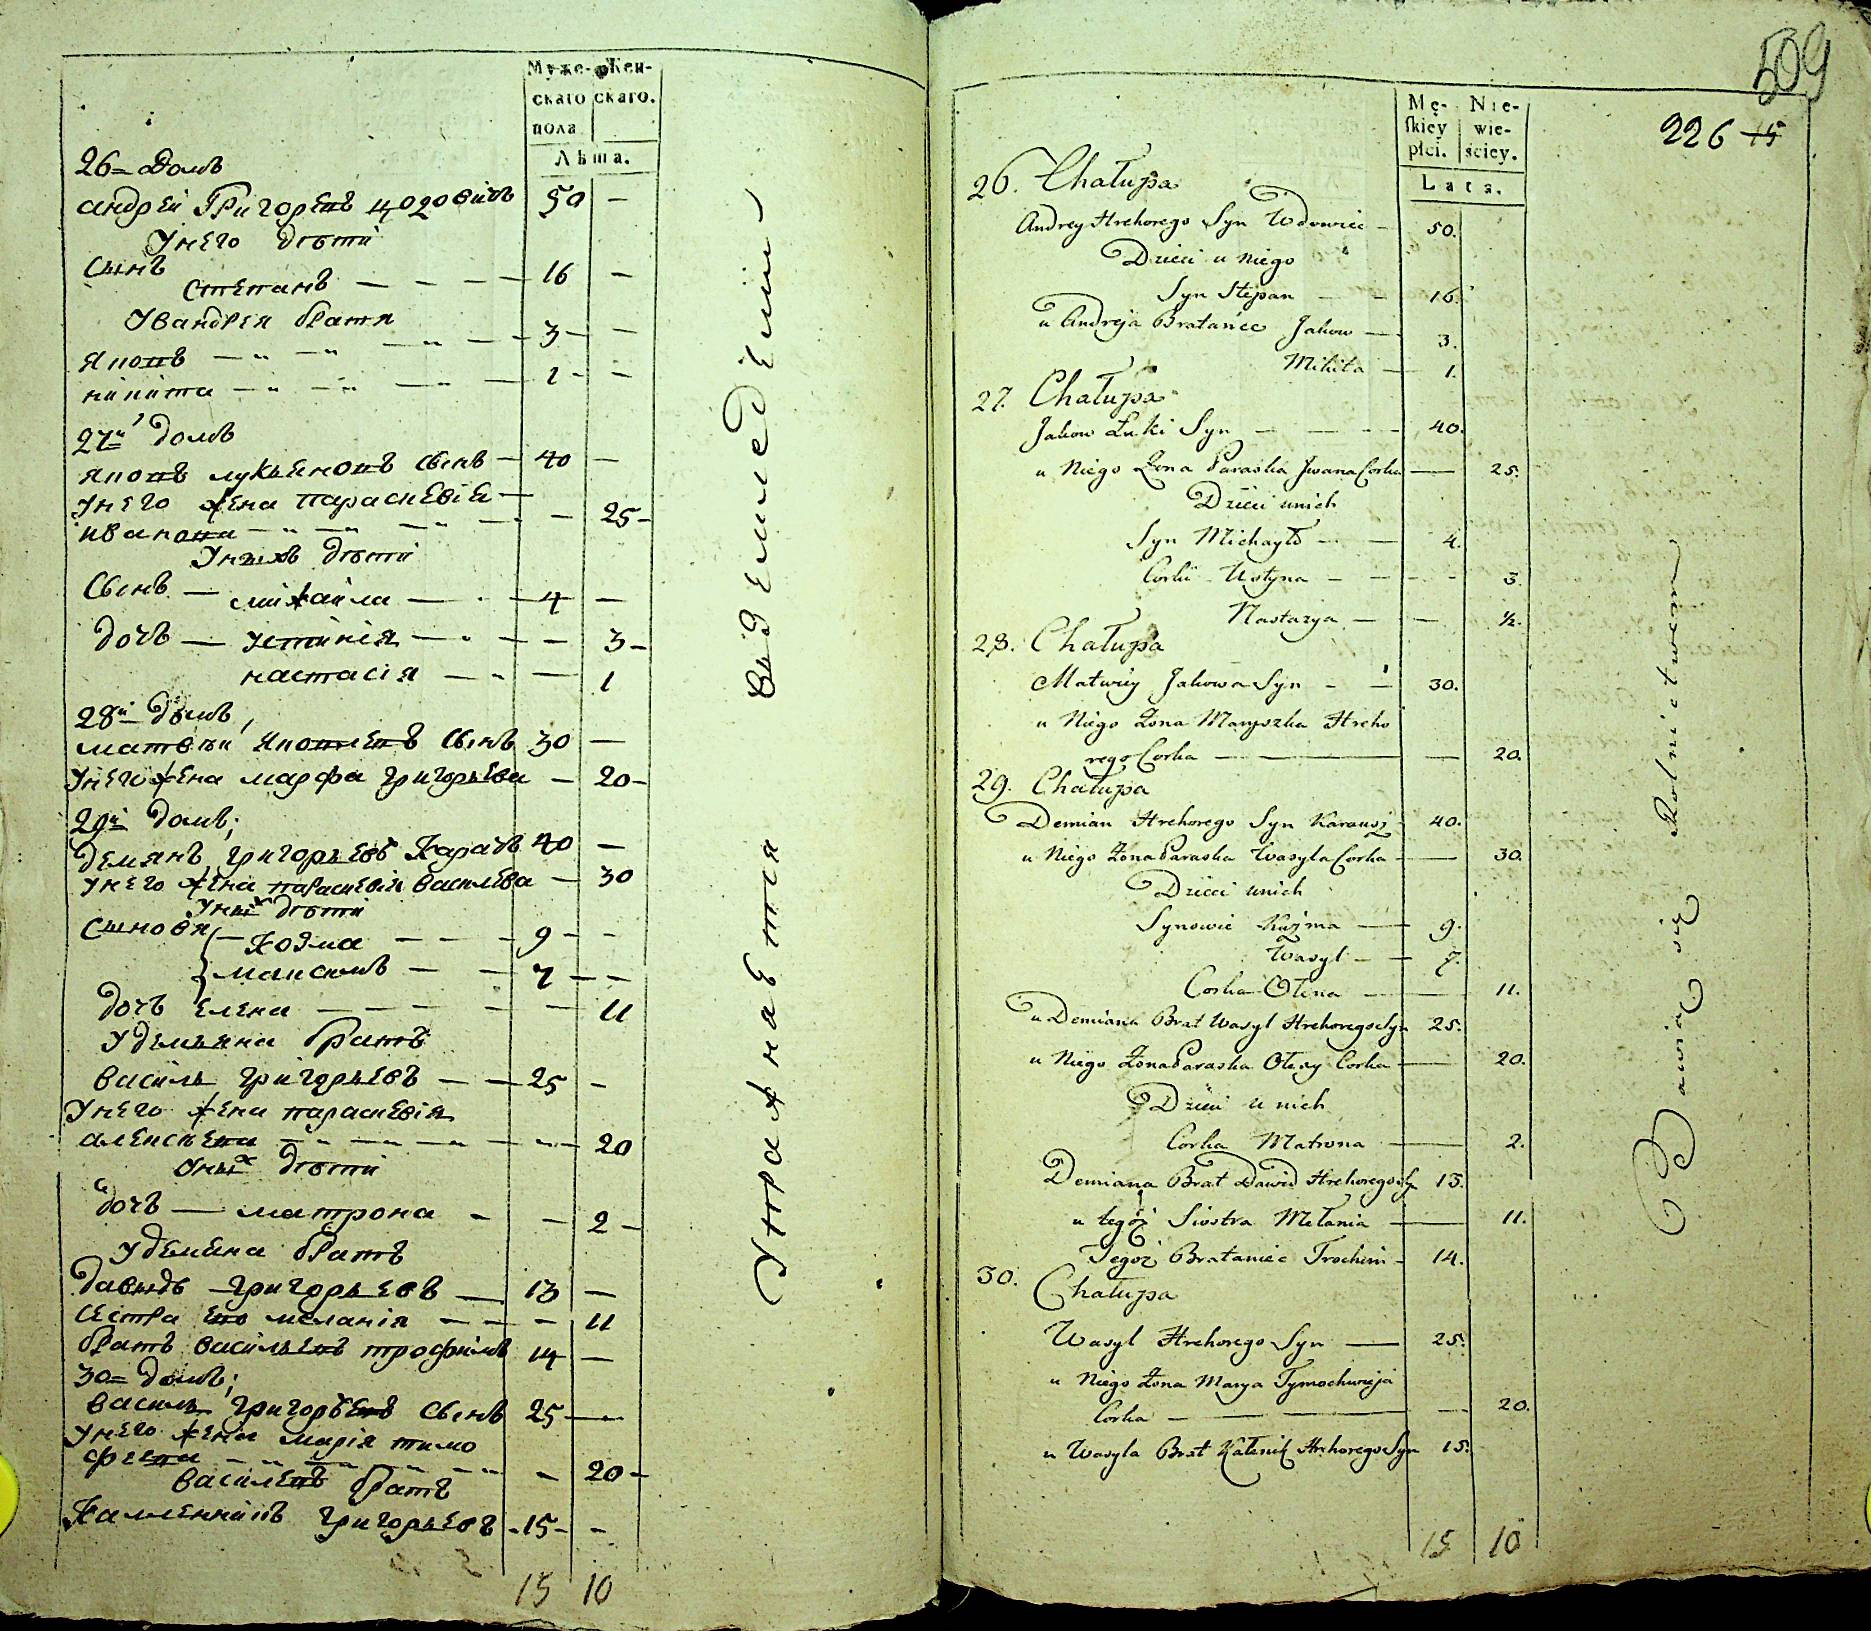 Муже- Жен-
скаго скаго.
пола
Лѣта.
26 = Домъ
андрей Григорьевъ удовецъ 50 —
Унего дѣти
Сынъ
степанъ — — — 16 —
Уандрея братя
яковъ — — — 3 —
никита — — — 1 —
27й домъ
яковъ лукьяновъ сынъ — 40 —
Унего жена параскевія —
иванова — — — 25 —
Унихъ дѣти
Сынъ — михайла — 4 —
дочь — устинія — — 3 —
настасія — — 1
28й домъ,
матвей яковлевъ сынъ 30 —
Унего жена марфа григорьева — 20 —
29й домъ;
демянъ григорьевъ 40 —
Унего жена параскевія васильева — 30
Унихъ дѣти
Сыновя — козма — — 9 — —
максимъ — — 7 — —
дочь елена — — — — 11
Удемьяна братъ
василь григорьевъ — — 25 —
Унего жена параскевія
алексѣева — — — 20
Унихъ дѣти
дочь — матрона — — 2 —
Удемяна братъ
давыдъ григорьевъ — 13 —
сестра его меланія — — — 11
братъ васильевъ трофимъ 14 —
30 = домъ;
василь григорьевъ сынъ 25 —
Унего жена марія тимо
феева — — — 20 —
василевъ братъ
Каленикъ григорьевъ - 15 - —
15 10
Упражнается въземледѣлии
509
226 15
Mę- Nie-
skiey wie-
płci. ściey.
Lata.
26. Chałupa
Andrey Hrehorego Syn Wdowiec — 50.
Dzieci u Niego
Syn Stepan — — 16.
u Andreja Bratańce Jakow — 3.
Mikita — 1.
27. Chałupa
Jakow Łuki Syn — — — 40.
u Niego Żona Paraska Jwana Corka — 25.
Dzieci unich
Syn Michayło — — 4.
Corki Ustyna — — — 3.
Nastazya — — ½.
28. Chałupa
Matwiey Jakowa Syn — — 30.
u Niego Żona Maryszka Hreho
rego Corka — — 20.
29. Chałupa
Demian Hrehorego Syn 40.
u Niego Żona Paraska Wasyla Corka — 30.
Dzieci unich
Synowie Kuźma — 9.
Wasyl — — 7.
Corka Ołena — — 11.
u Demiana Brat Wasyl Hrehorego Syn 25.
u Niego Żona Paraska Olexy Corka — 20.
Dzieci u nich
Corka Matrona — — 2.
Demiana Brat Dawid Hrehorego Sy 13.
u tegoż Siostra Mełania — — 11.
Tegoż Brataniec Trochim — 14.
30. Chałupa
Wasyl Hrehorego Syn — 25.
u Niego Żona Marya Tymochwieja
Corka — — — 20.
u Wasyla Brat Kalenik Hrehorego Syn 15.
15 10
Bawią się Rolnictwem